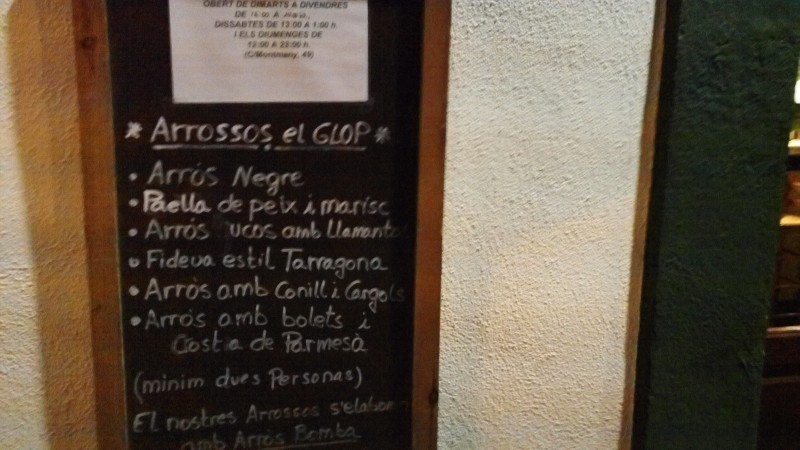 OBERT DE DIMARTS A DIVENDRES
DE
DISSABTES DE 13:00 A 1:00 h.
I ELS DIUMENGES DE
12:00 A 23:00 h.
(C/Montmany, 49)
* ARROSSOS el GLOP *
• Arròs Negre
• Paella de peix i marisc
• Arròs amb Llamantol
• Fideua estil Tarragona
• Arròs amb Conill i Cargols
• Arròs amb bolets i
Crosta de Parmesà
(minim dues Personas)
El nostres Arrossos s'elaboren
amb Arròs Bomba